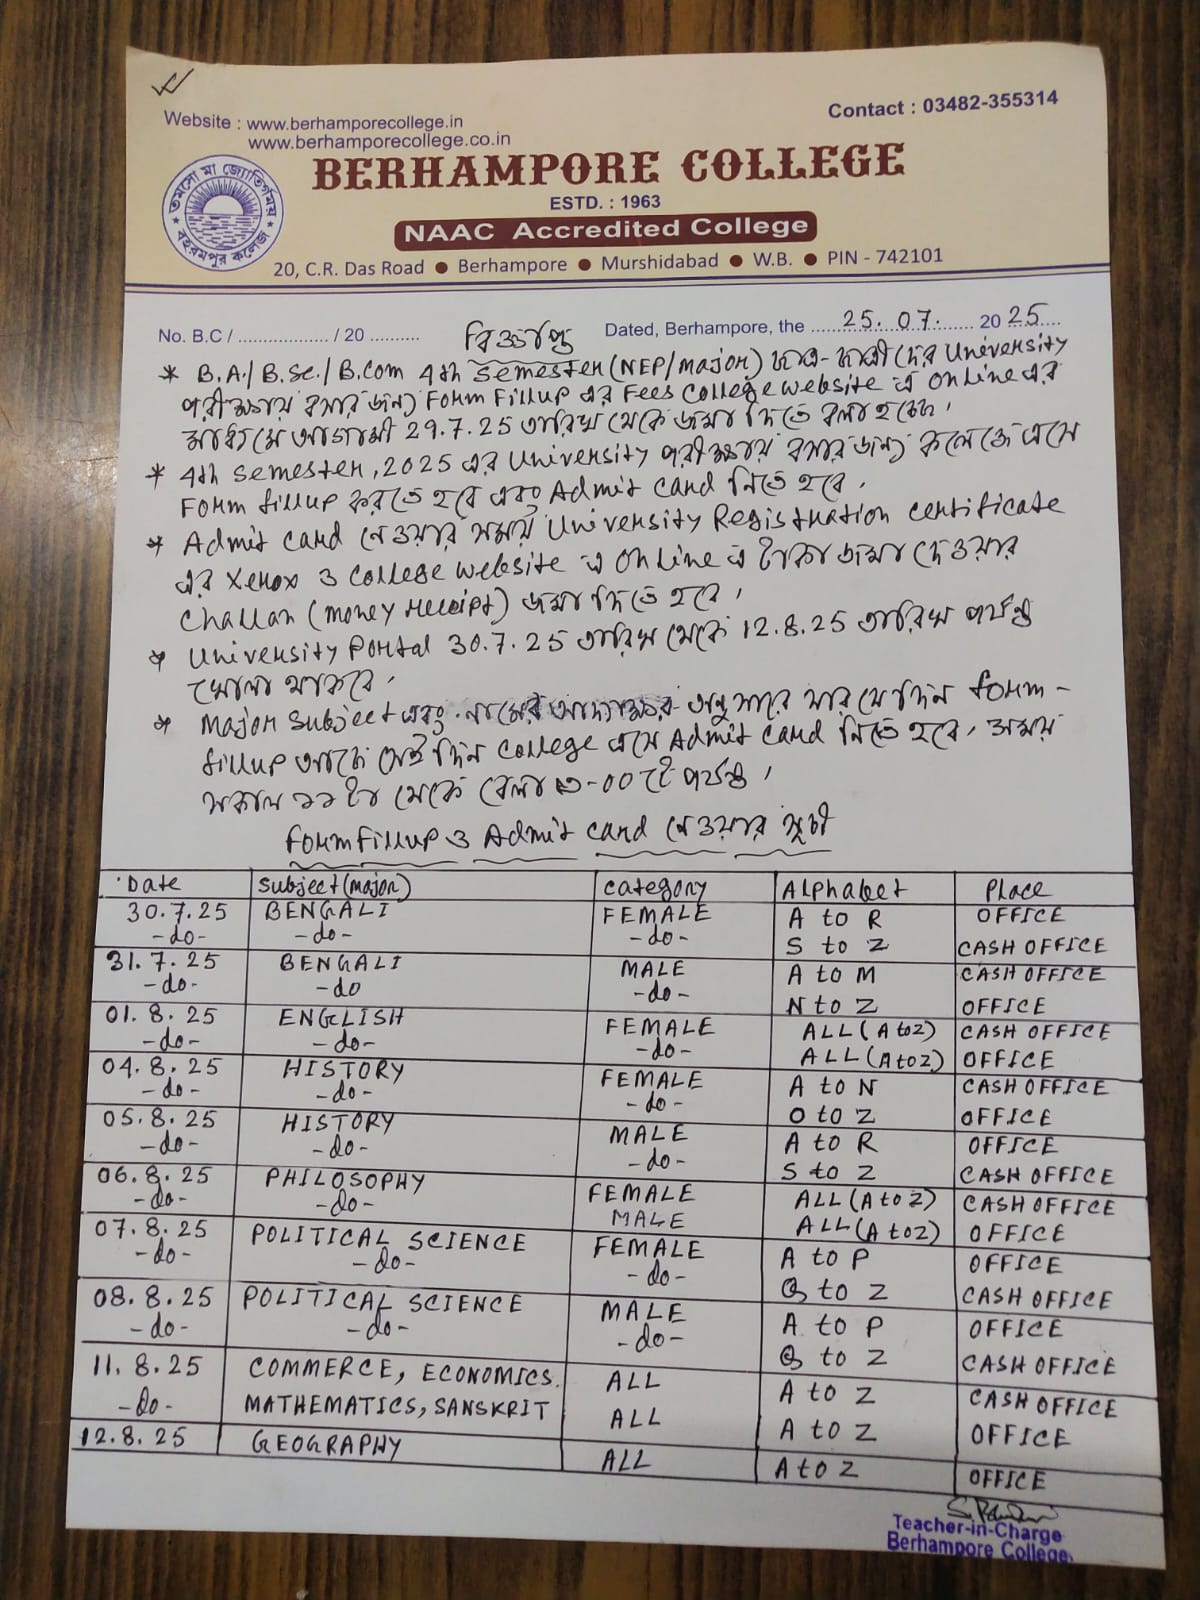 Website : www.berhamporecollege.in
www.berhamporecollege.co.in
Contact : 03482-355314
তমসো মা জ্যোতির্গময়
বহরমপুর কলেজ
BERHAMPORE COLLEGE
ESTD. : 1963
NAAC Accredited College
20, C.R. Das Road ● Berhampore ● Murshidabad ● W.B. ● PIN - 742101
No. B.C / .................. / 20 .......... বিজ্ঞপ্তি Dated, Berhampore, the ...... 25. 07. ...... 20 25
* B.A./B.Sc./B.Com 4th Semester (NEP/Major) ছাত্র-ছাত্রীদের University
পরীক্ষায় বসার জন্য Form Fillup এর Fees College website এ Online এর
মাধ্যমে আগামী 29.7.25 তারিখ থেকে জমা দিতে বলা হচ্ছে।
* 4th Semester, 2025 এর University পরীক্ষায় বসার জন্য কলেজে এসে
Form fillup করতে হবে এবং Admit Card নিতে হবে।
* Admit Card নেওয়ার সময় University Registration certificate
এর Xerox ও College website এ Online এ টাকা জমা দেওয়ার
Challan (money receipt) জমা দিতে হবে।
* University Portal 30.7.25 তারিখ থেকে 12.8.25 তারিখ পর্যন্ত
খোলা থাকবে।
* Major Subject এবং নামের আদ্যাক্ষর অনুসারে যার যেদিন form-
fillup আছে সেই দিন College এসে Admit Card নিতে হবে। সময়
সকাল ১১ টা থেকে বেলা ৩-০০ টে পর্যন্ত।
Form Fillup ও Admit Card নেওয়ার সূচী
Date Subject (Major) Category Alphabet Place
30.7.25 BENGALI FEMALE A to R OFFICE
-do- -do- -do- S to Z CASH OFFICE
31.7.25 BENGALI MALE A to M CASH OFFICE
-do- -do -do- N to Z OFFICE
01.8.25 ENGLISH FEMALE ALL (A to Z) CASH OFFICE
-do- -do- -do- ALL (A to Z) OFFICE
04.8.25 HISTORY FEMALE A to N CASH OFFICE
-do- -do- -do- O to Z OFFICE
05.8.25 HISTORY MALE A to R OFFICE
-do- -do- -do- S to Z CASH OFFICE
06.8.25 PHILOSOPHY FEMALE ALL (A to Z) CASH OFFICE
-do- -do- MALE ALL (A to Z) OFFICE
07.8.25 POLITICAL SCIENCE FEMALE A to P OFFICE
-do- -do- -do- Q to Z CASH OFFICE
08.8.25 POLITICAL SCIENCE MALE A to P OFFICE
-do- -do- -do- Q to Z CASH OFFICE
11.8.25 COMMERCE, ECONOMICS. ALL A to Z CASH OFFICE
-do- MATHEMATICS, SANSKRIT ALL A to Z OFFICE
12.8.25 GEOGRAPHY ALL A to Z OFFICE
Teacher-in-Charge
Berhampore College